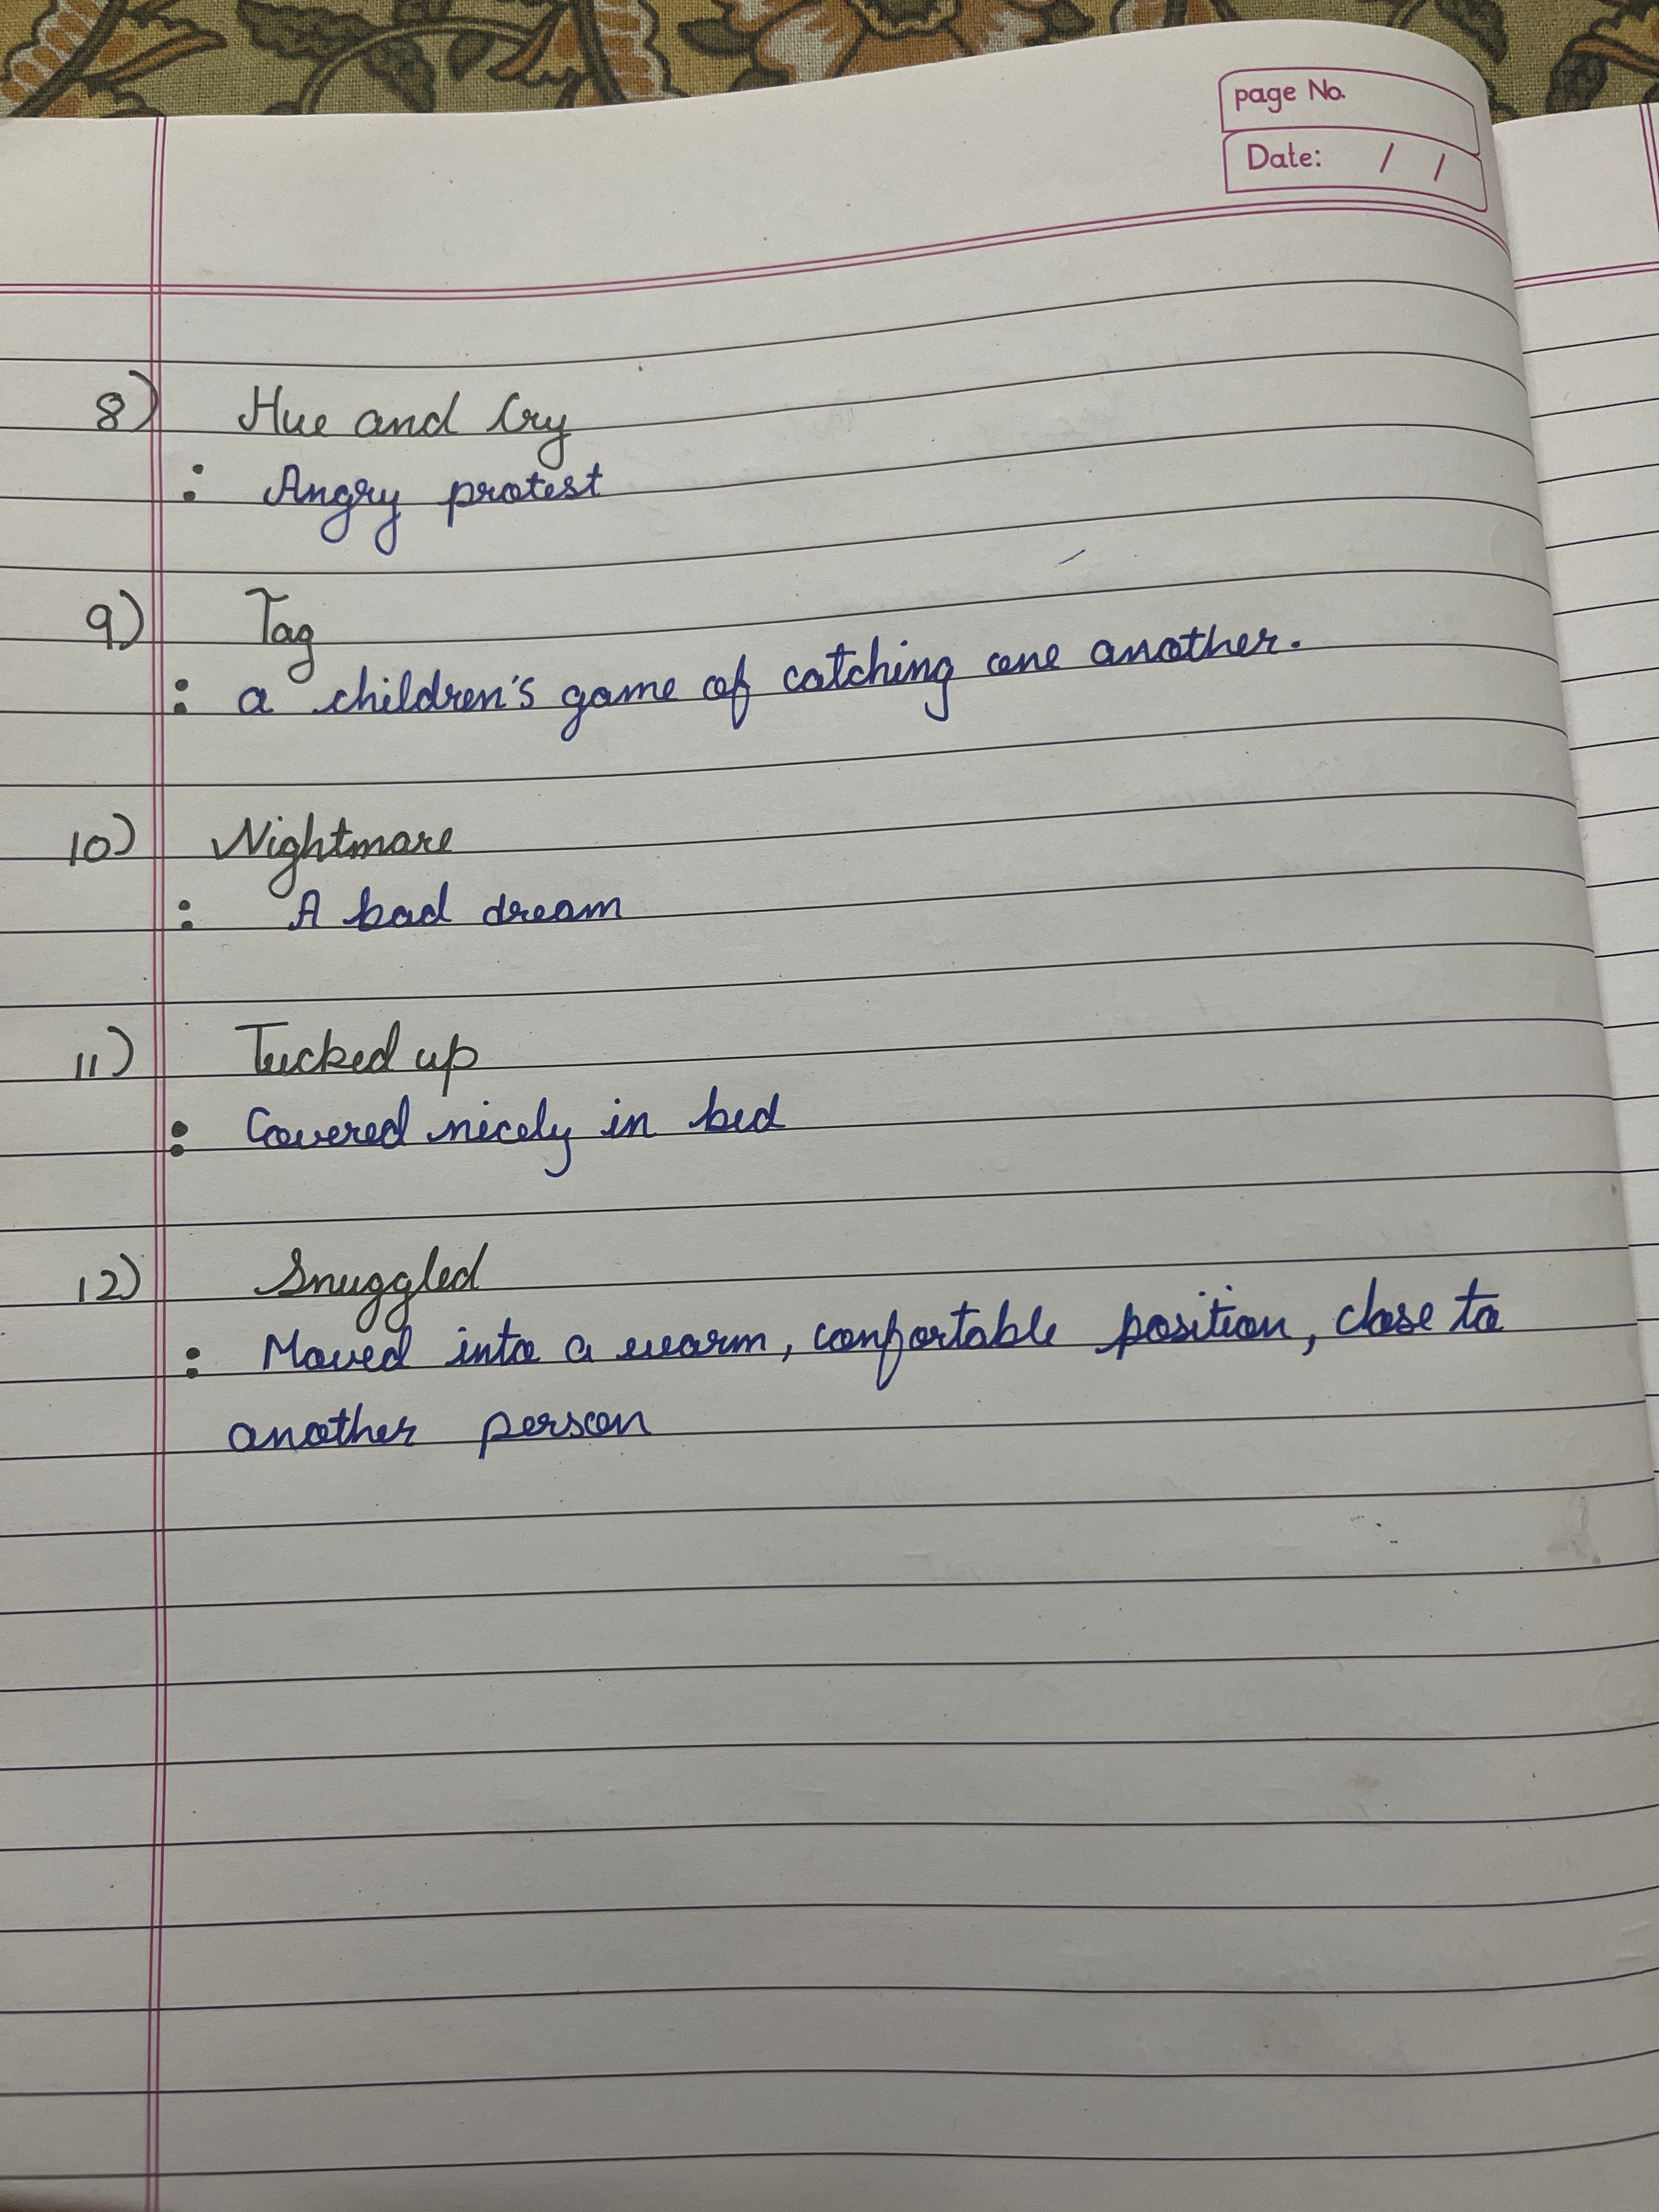 page No.
Date: / /
8) Hue and Cry
: Angry protest
9) Tag
: a children's game of catching one another.
10) Nightmare
: A bad dream
11) Tucked up
: Covered nicely in bed
12) Snuggled
: Moved into a warm, confortable position, close to
another person